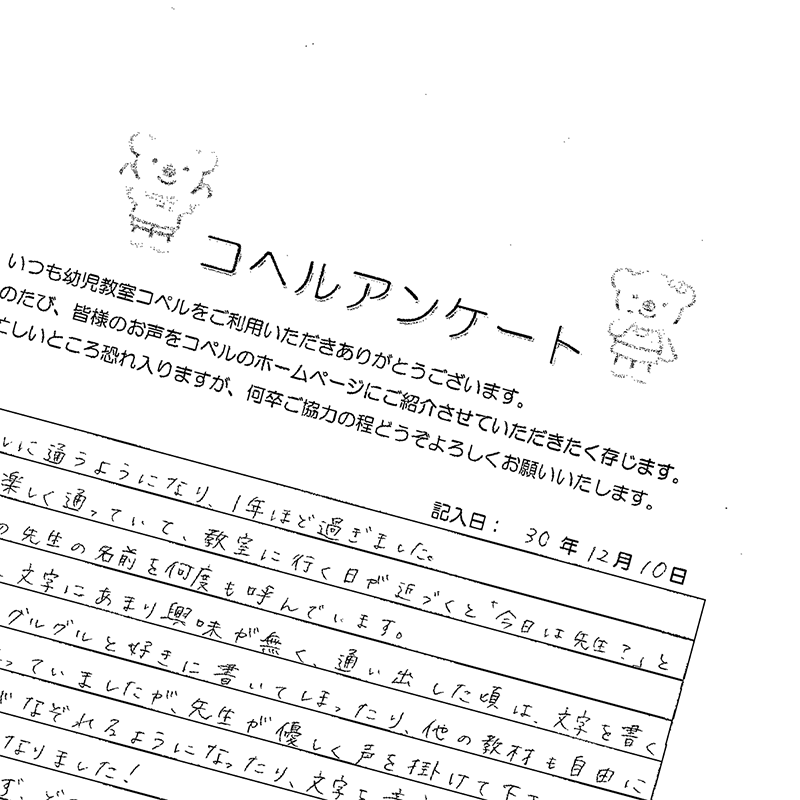 コペルアンケート
いつも幼児教室コペルをご利用いただきありがとうございます。
のたび、皆様のお声をコペルのホームページにご紹介させていただきたく存じます。
忙しいところ恐れ入りますが、何卒ご協力の程どうぞよろしくお願いいたします。
記入日： 30年12月10日
に通うようになり、1年ほど過ぎました。
楽しく通っていて、教室に行く日が近づくと「今日は先生？」と
の先生の名前を何度も呼んでいます。
文字にあまり興味が無く、通い出した頃は、文字を書く
グルグルと好きに書いてしまったり、他の教材も自由に
っていましたが、先生が優しく声を掛けて下
がなぞれるようになったり、文字を
なりました！